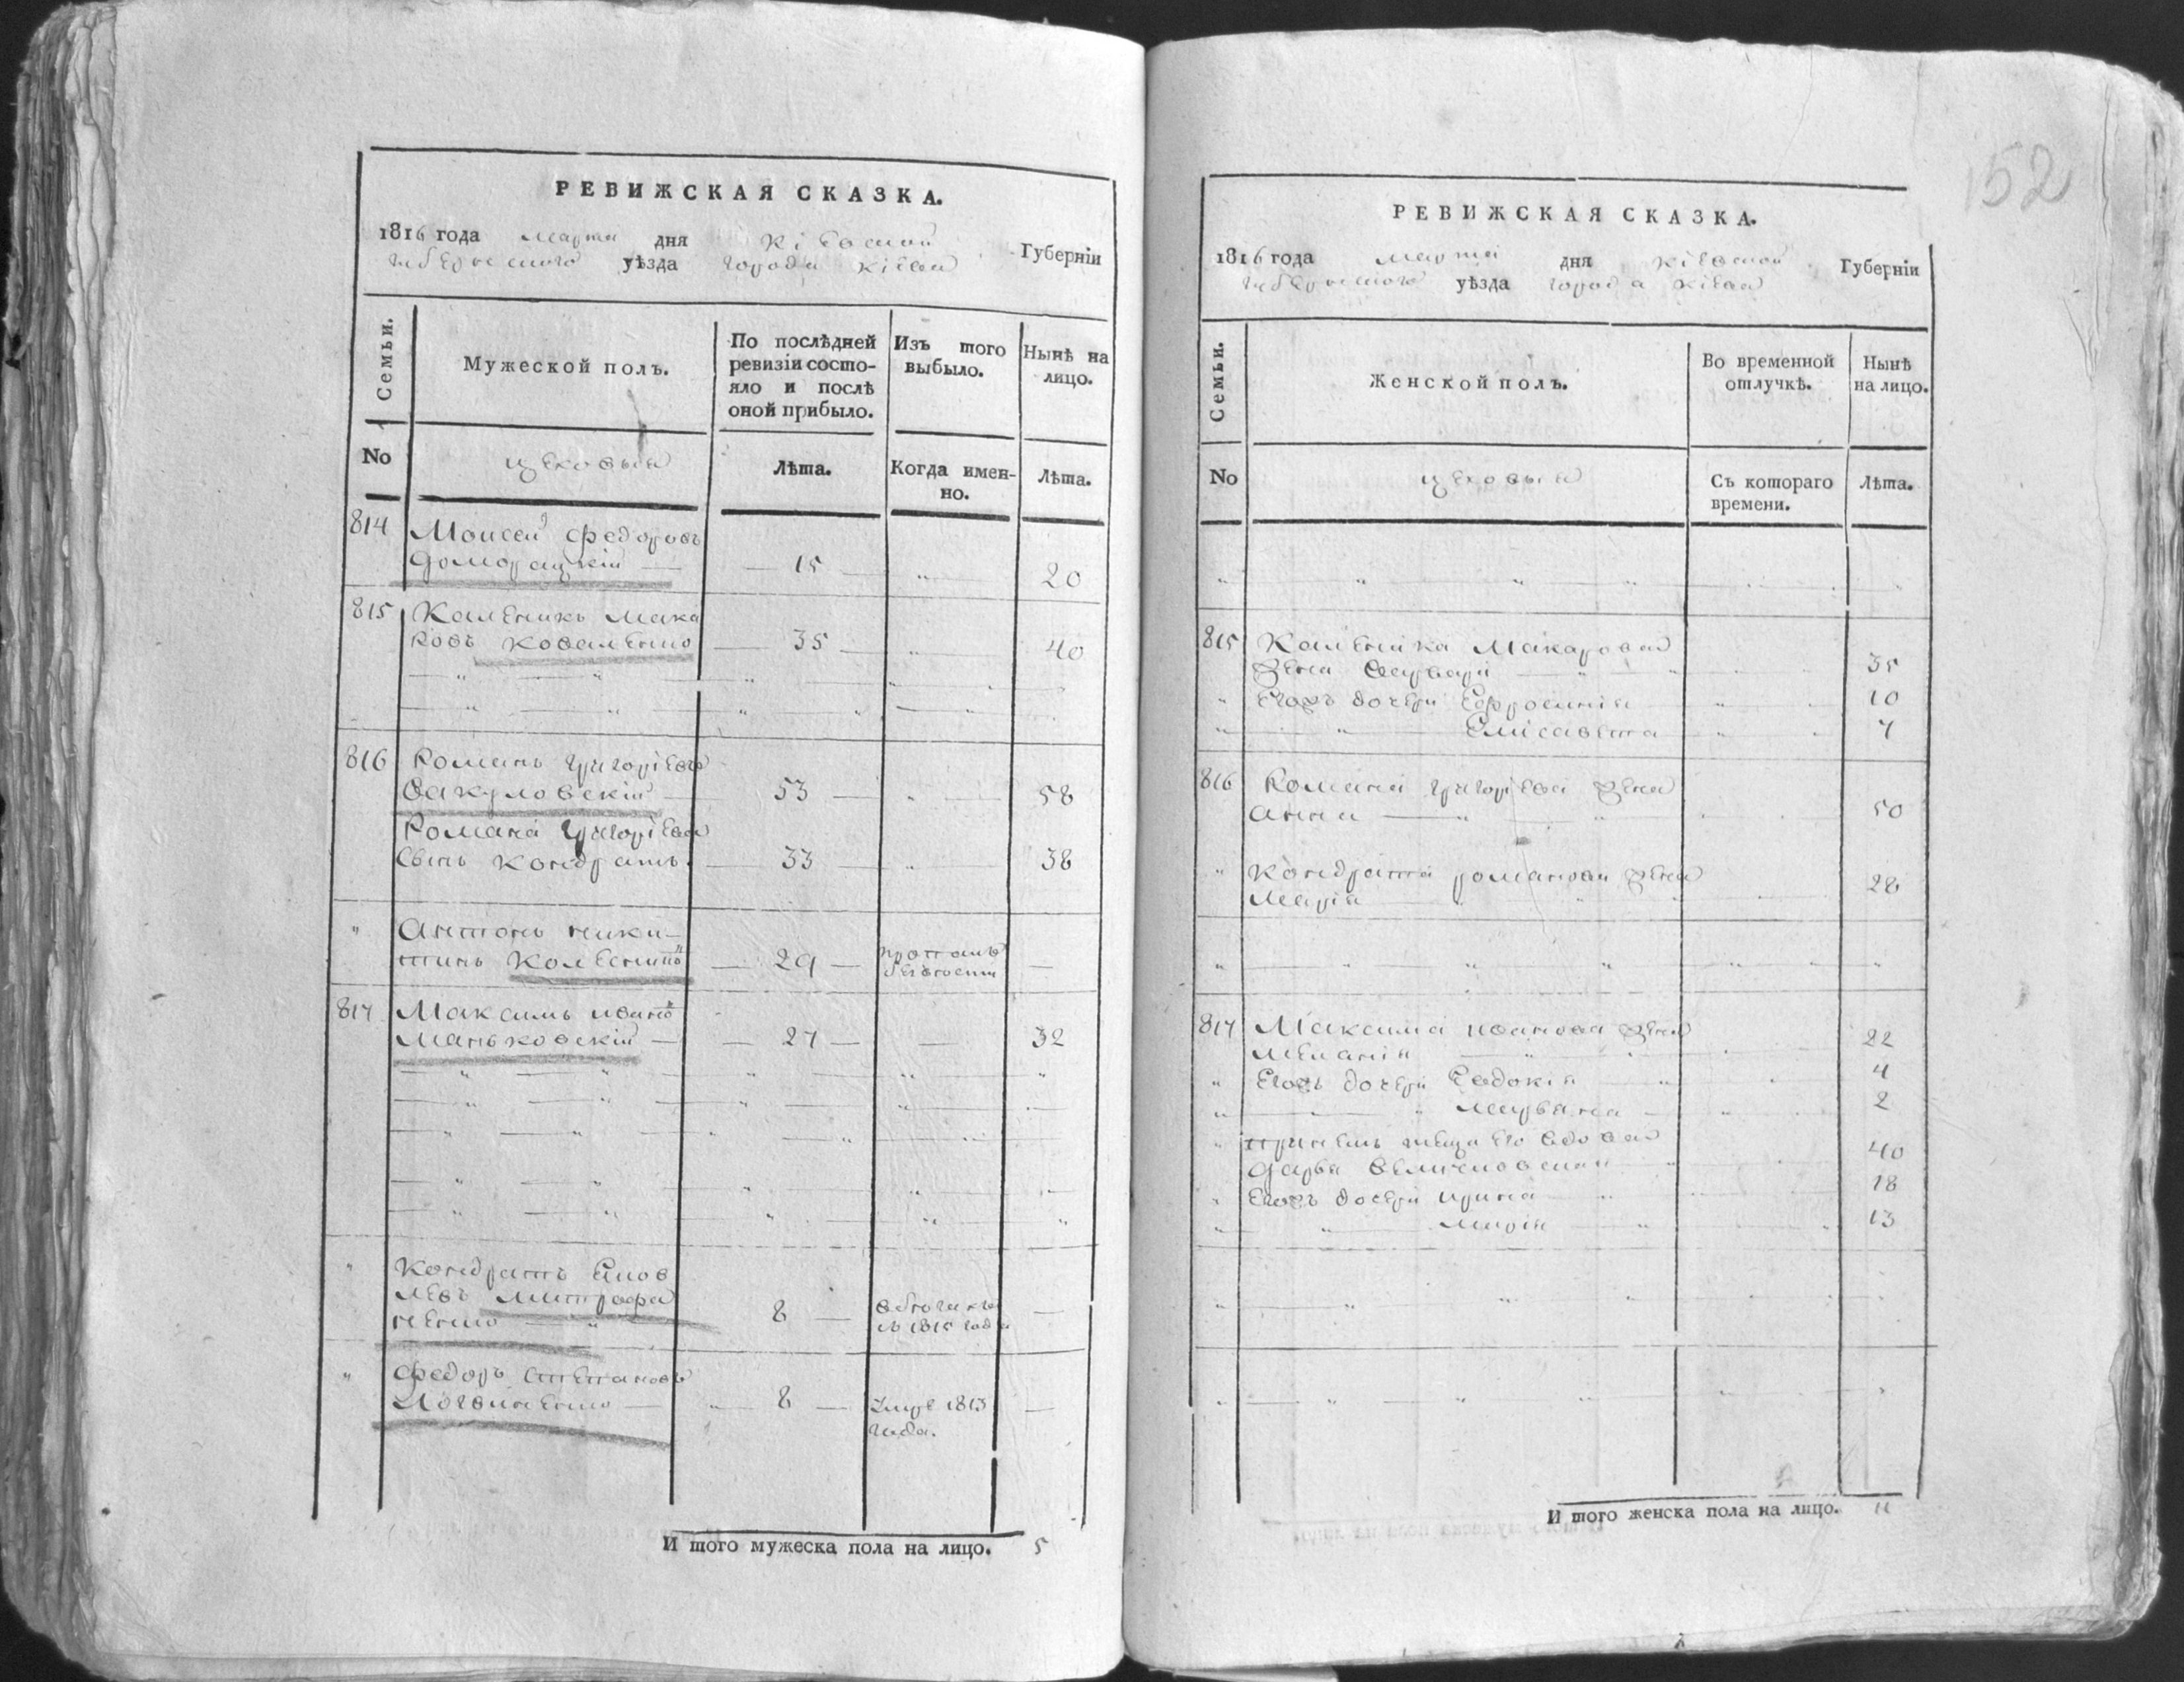 152
РЕВИЖСКАЯ СКАЗКА.
1816 года марта дня Кіевской Губерніи
уѣзда города Кіева
Семьи.
Мужеской полъ.
По послѣдней ревизіи состо-
яло и послѣ оной прибыло.
Изъ того выбыло.
Нынѣ на лицо.
No
цеховыя
Лѣта.
Когда имен-
но.
Лѣта.
814 Моисей Федоровъ
Доморацкій — 15 — „ 20
815 Каленикъ Мака
ровъ Коваленко — 35 — „ 40
816 Романъ Григоріевъ
Вакуловскій — 53 — „ — 58
Романа Григоріева
сынъ Кондратъ — 33 — „ 38
„ Антонъ Ники-
тинъ — 29 — —
817 Максимъ Ивановъ
Маньковскій — 27 — — 32
„ Кондратъ Яков
левъ Митрофа
ненко — „ 8 — —
въ 1815 года
„ Федоръ Степановъ
Логвиненко — „ 8 — умре 1813 —
года.
И того мужеска пола на лицо. 5
РЕВИЖСКАЯ СКАЗКА.
1816 года марта дня Кіевской Губерніи
уѣзда города Кіева
Семьи.
Женской полъ.
Во временной
отлучкѣ.
Нынѣ
на лицо.
No
цеховыя
Съ котораго
времени.
Лѣта.
815 Каленика Макарова
жена Варвара 35
„ Егожъ дочери Ефросинія 10
„ Елисавета 7
816 Романа Григоріева жена
Анна 50
„ Кондрата Романова жена
Марія 28
817 Максима Иванова жена
Меланія 22
„ Егожъ дочери Евдокія 4
„ 2
„ теща его вдова
Дарья 40
„ дочери Ирина 18
„ Марія 13
И того женска пола на лицо. 11